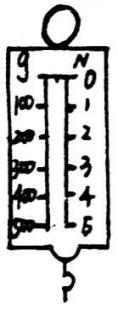 g N
0
100 1
200 2
300 3
400 4
500 5